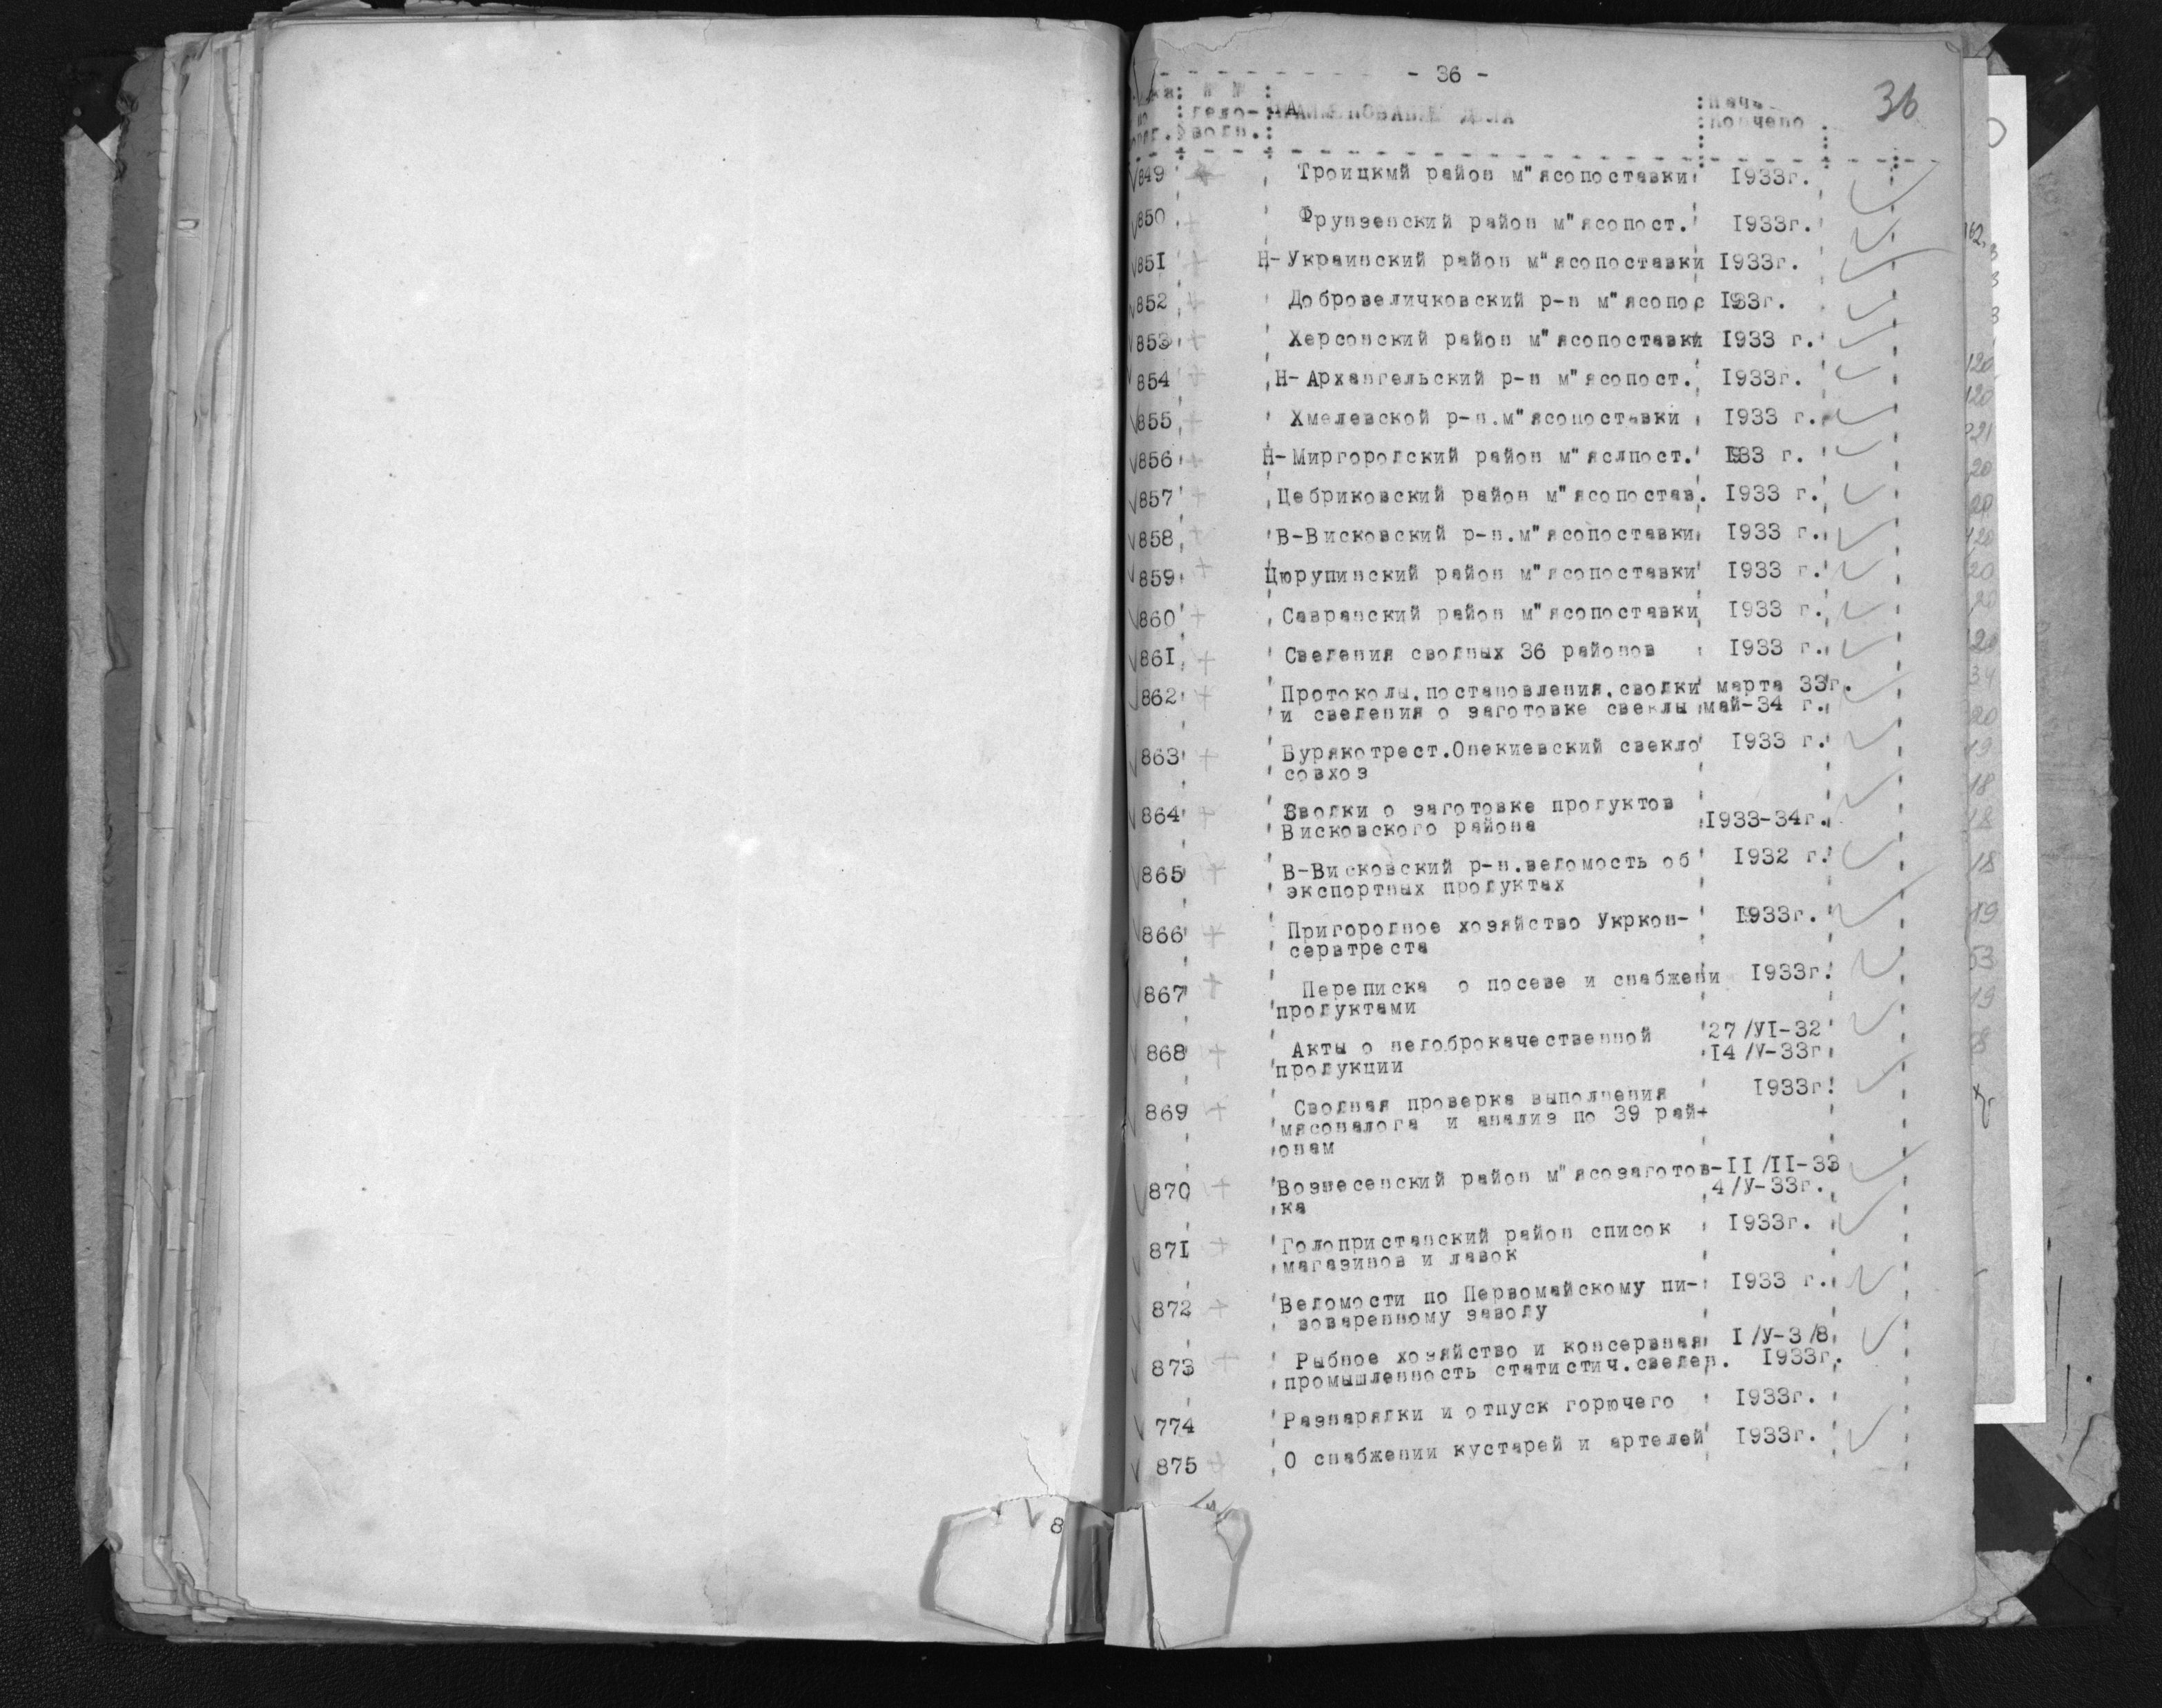 - 36 -
36
НАИМЕНОВАНИЕ ДЕЛА
849 Троицкмй район м"ясопоставки 1933г.
850 Фрунзенский район м"ясопост. 1933г.
851 Н-Украинский район м"ясопоставки 1933г.
852 Добровеличковский р-н м"ясопос 1933г.
853 Херсонский район м"ясопоставки 1933 г.
854 Н-Архангельский р-н м"ясопост. 1933г.
855 Хмелевской р-н.м"ясопоставки 1933 г.
856 Н-Миргородский район м"яслпост. 1933 г.
857 Цебриковский район м"ясопостав. 1933 г.
858 В-Висковский р-н.м"ясопоставки 1933 г.
859 Цюрупинский район м"ясопоставки 1933 г.
860 Савранский район м"ясопоставки 1933 г.
861 Сведения сводных 36 районов 1933 г.
862 Протоколы.постановления.сводки марта 33г.
и сведения о заготовке свеклы май-34 г.
863 Бурякотрест.Онекиевский свекло 1933 г.
совхоз
864 Сводки о заготовке продуктов
Висковского района 1933-34г.
865 В-Висковский р-н.ведомость об 1932 г.
экспортных продуктах
866 Пригородное хозяйство Укркон- 1933г.
сервтреста
867 Переписка о посеве и снабжени 1933г.
продуктами
868 Акты о недоброкачественной 27/УI-32
продукции 14/У-33г
869 Сводная проверка выполнения 1933г.
мясоналога и анализ по 39 рай-
онам
870 Вознесенский район м"ясозаготов-II/II-33
ка 4/У-33г.
871 Голопристанский район список 1933г.
магазинов и лавок
872 Ведомости по Первомайскому пи- 1933 г.
воваренному заводу
873 Рыбное хозяйство и консервная I/У-3/8
промышленность статистич.сведен. 1933г.
774 Разнарядки и отпуск горючего 1933г.
875 О снабжении кустарей и артелей 1933г.
8